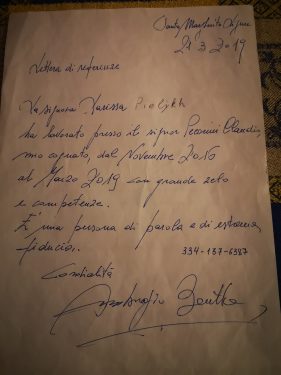 Santa Margherita Ligure
21 3 2019
Lettera di referenze
La signora Larissa
ha lavorato presso il signor Peronini Claudio,
mio cognato, dal Novembre 2016
al Marzo 2019 con grande zelo
e competenze.
E' una persona di parola e di estrema
fiducia.
334-137-6387
Cordialità